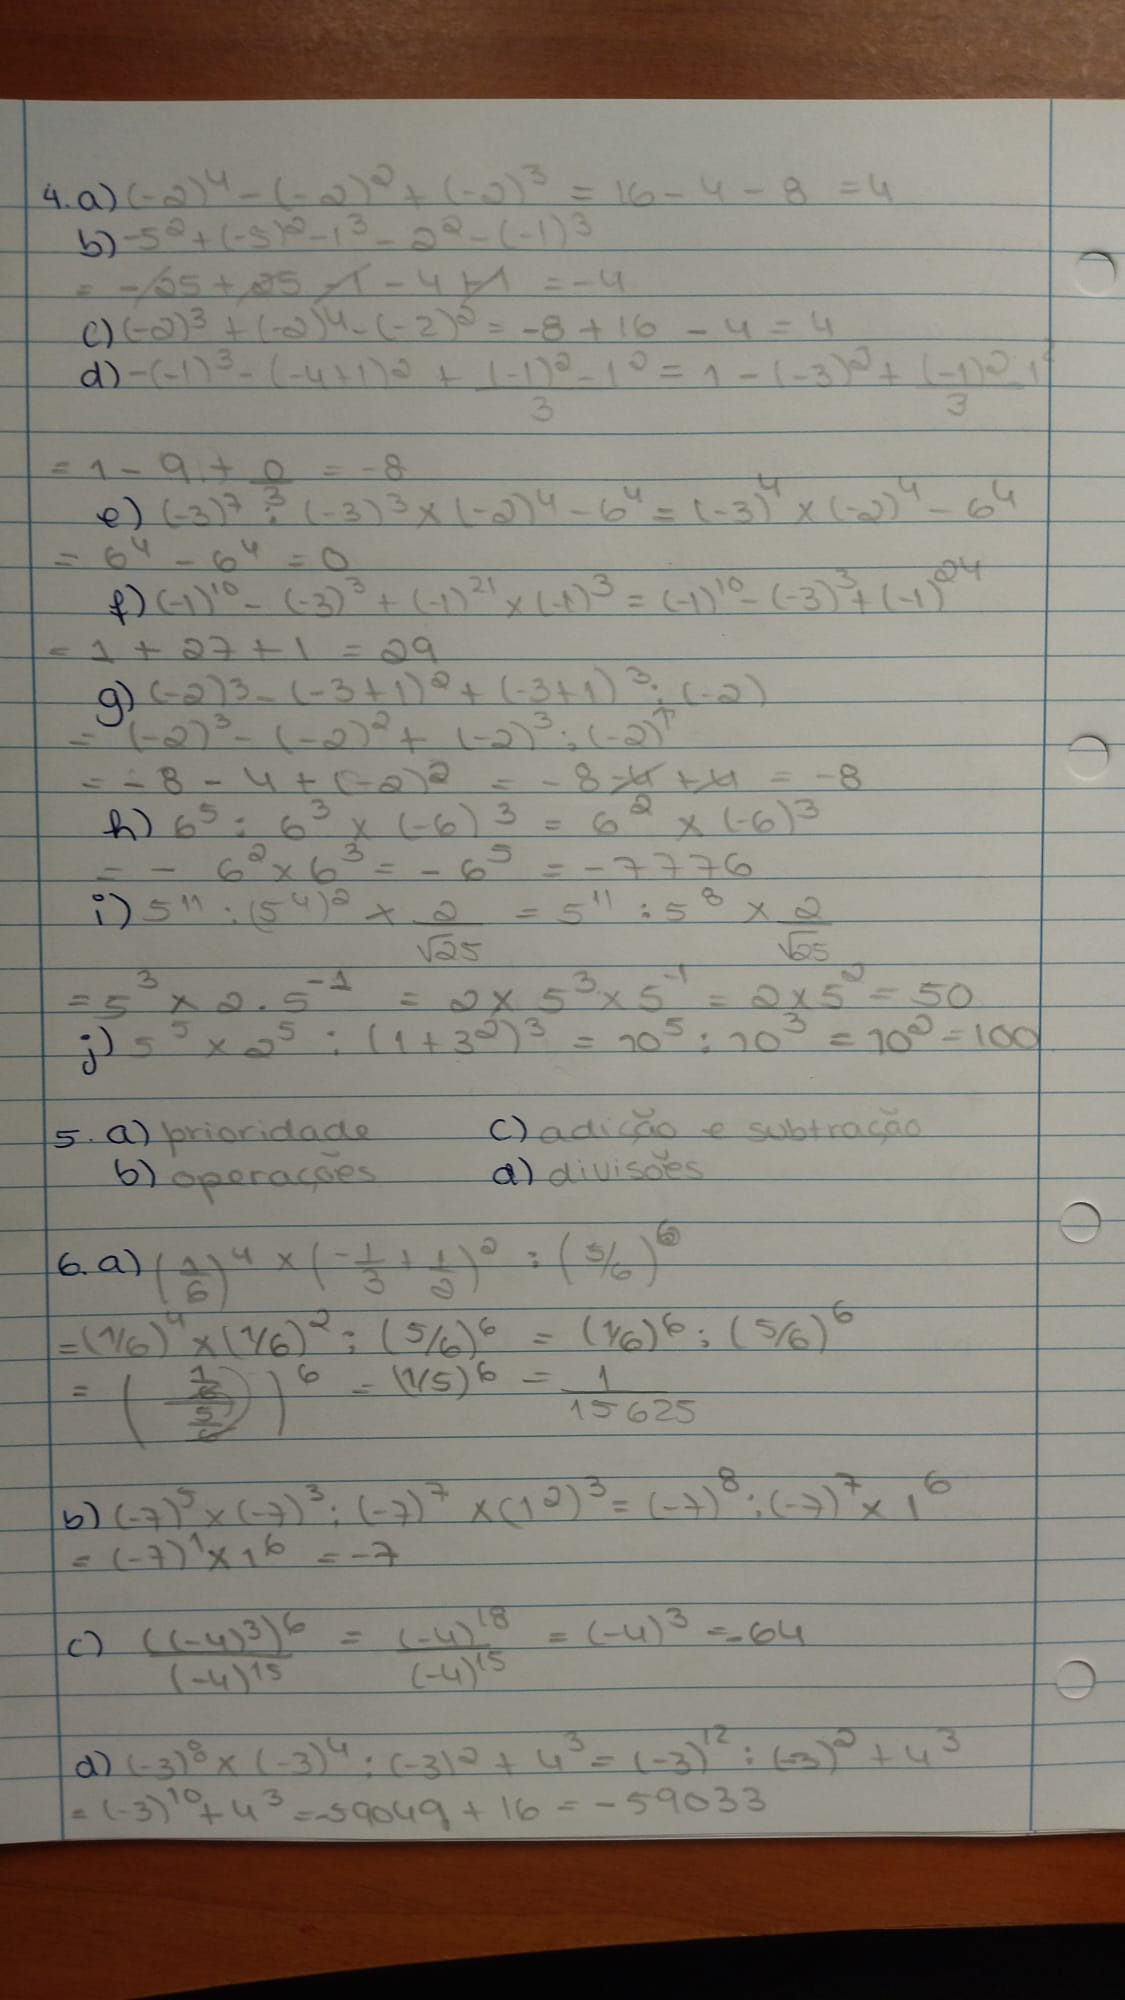 4. a) (-2)⁴ - (-2)² + (-2)³ = 16 - 4 - 8 = 4
b) -5² + (-5)² - 1³ - 2² - (-1)³
= -25 + 25 - 1 - 4 + 1 = -4
c) (-2)³ + (-2)⁴ - (-2)² = -8 + 16 - 4 = 4
d) -(-1)³ - (-4+1)² + \frac{(-1)² - 1²}{3} = 1 - (-3)² + \frac{(-1)² - 1²}{3}
= 1 - 9 + \frac{0}{3} = -8
e) (-3)⁷ : (-3)³ × (-2)⁴ - 6⁴ = (-3)⁴ × (-2)⁴ - 6⁴
= 6⁴ - 6⁴ = 0
f) (-1)¹⁰ - (-3)³ + (-1)²¹ × (-1)³ = (-1)¹⁰ - (-3)³ + (-1)²⁴
= 1 + 27 + 1 = 29
g) (-2)³ - (-3+1)² + (-3+1)³ : (-2)
= (-2)³ - (-2)² + (-2)³ : (-2)¹
= -8 - 4 + (-2)² = -8 - 4 + 4 = -8
h) 6⁵ : 6³ × (-6)³ = 6² × (-6)³
= - 6² × 6³ = - 6⁵ = -7776
i) 5¹¹ : (5⁴)² × \frac{2}{√25} = 5¹¹ : 5⁸ × \frac{2}{√25}
= 5³ × 2 · 5⁻¹ = 2 × 5³ × 5⁻¹ = 2 × 5² = 50
j) 5⁵ × 2⁵ : (1 + 3²)³ = 10⁵ : 10³ = 10² = 100
5. a) prioridade c) adição e subtração
b) operações d) divisões
6. a) (\frac{1}{6})⁴ × (-\frac{1}{3} + \frac{1}{2})² : (5/6)⁶
= (1/6)⁴ × (1/6)² : (5/6)⁶ = (1/6)⁶ : (5/6)⁶
= (\frac{\frac{1}{6}}{\frac{5}{6}})⁶ = (1/5)⁶ = \frac{1}{15625}
b) (-7)⁵ × (-7)³ : (-7)⁷ × (1²)³ = (-7)⁸ : (-7)⁷ × 1⁶
= (-7)¹ × 1⁶ = -7
c) \frac{((-4)³)⁶}{(-4)¹⁵} = \frac{(-4)¹⁸}{(-4)¹⁵} = (-4)³ = -64
d) (-3)⁸ × (-3)⁴ : (-3)² + 4³ = (-3)¹² : (-3)² + 4³
= (-3)¹⁰ + 4³ = -59049 + 16 = -59033